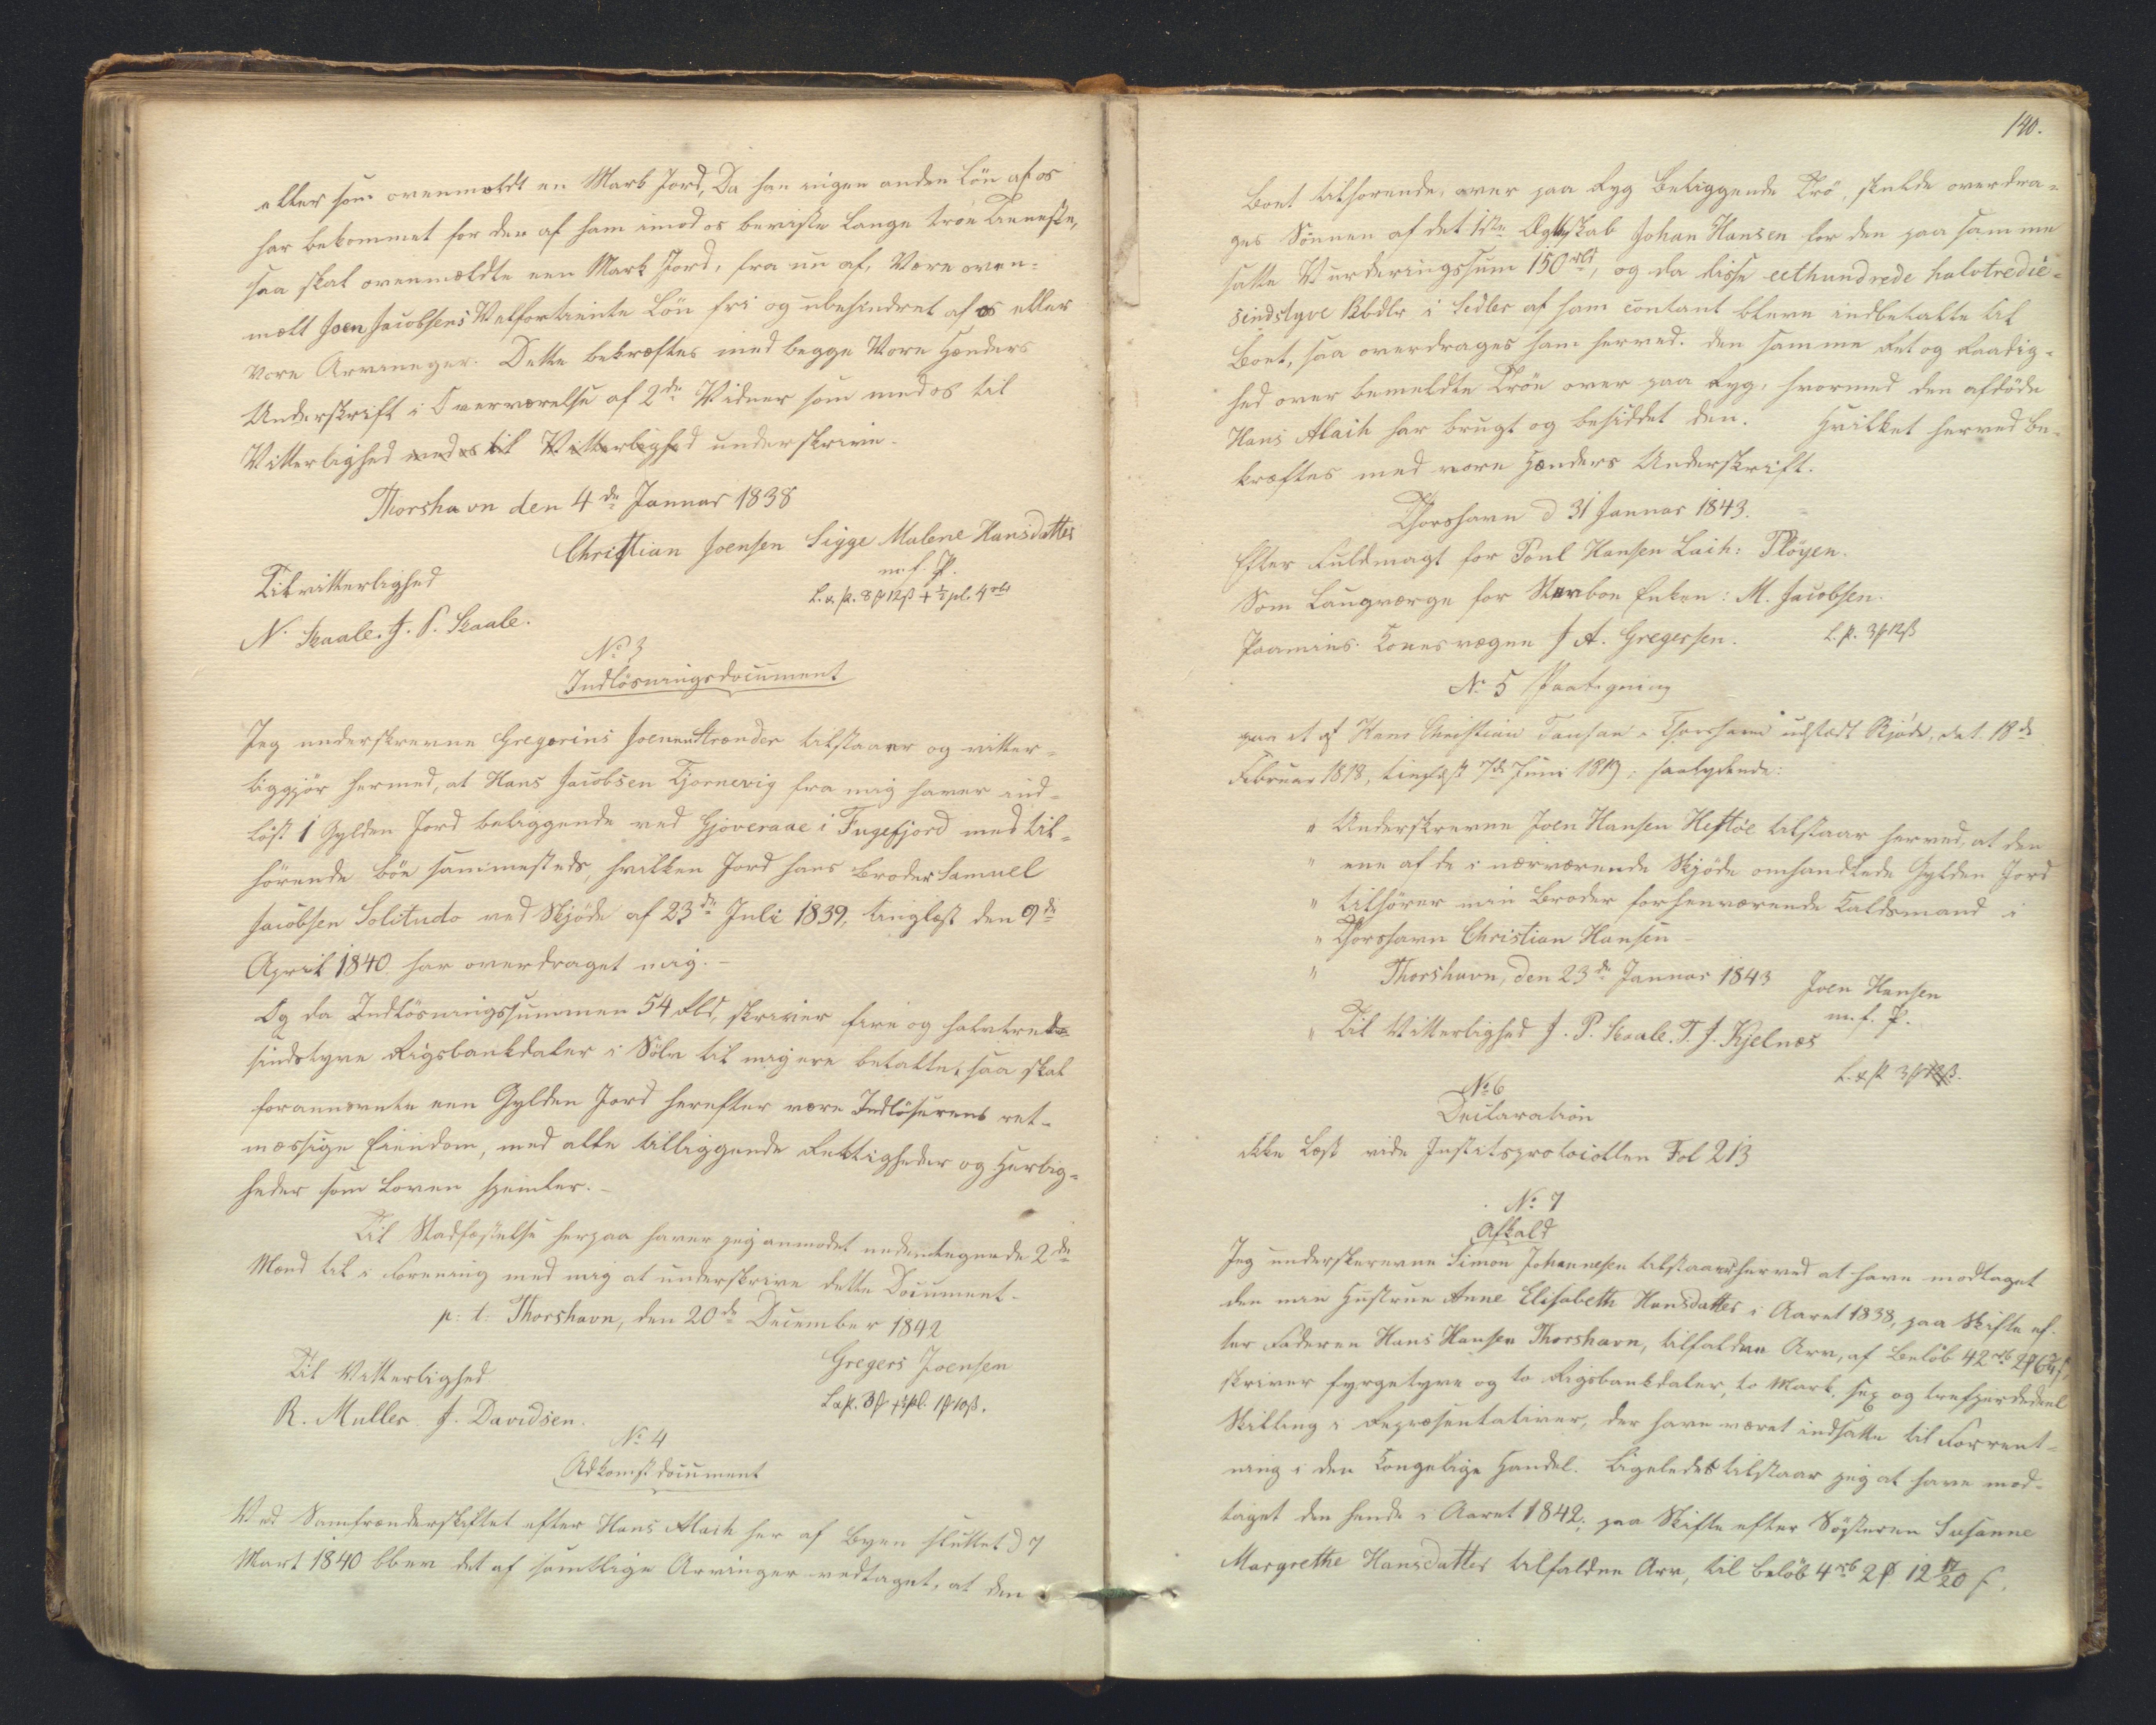 eller som ovenmeldt en Mark Jord, Da han ingen anden Løn af os
har bekommet for den af ham imod os beviste lange troe Tieneste,
saa skal ovenmældte een Mark Jord, fra nu af, være oven-
mælt Joen Jacobsens Velfortiente Løn fri og ubehindret af os eller
vore Arvinger. Dette bekræftes med begge Vore Hænders
Underskrift i Overværelse af 2de Vidner som med os til
Vitterlighed med os til Vitterlighed underskrive.
Thorshavn den 4de Januar 1838
Christian Joensen Sigge Malene Hansdatter
m. f. P.
Til vitterlighed
N. Skaale. J. P. Skaale.
No 3
Indløsningsdocument
Jeg underskrevne Gregorius Joensen Strender tilstaaer og vitter-
liggjør hermed, at Hans Jacobsen Tjornevig fra mig haver ind-
løst 1 Gylden Jord beliggende ved Gjoveraae i Fugefjord med til-
hørende Bøe sammesteds, hvilken Jord hans Broder Samuel
Jacobsen Solitudo ved Skjøde af 23de Juli 1839, tinglæst den 9de
April 1840 har overdraget mig.-
Og da Indløsningssummen 54 Rbd, skriver fire og halvtredie
sindstyve Rigsbankdaler i Sølv til mig ere betalte, saa skal
forannævnte een Gylden Jord herefter være Indløserens ret-
mæssige Eiendom, med alle tilliggende Rettigheder og Herlig-
heder som Loven hjemler.-
Til Stadfæstelse herpaa haver jeg anmodet undertegnede 2de
Mænd til i Forening med mig at underskrive dette Document-
p: t: Thorshavn, den 20de December 1842
Gregers Joensen
Til Vitterlighed
R. Muller. J. Davidsen.
No 4
Adkomstdocument
Ved Samfrænderskiftet efter Hans Alaih her af Byen sluttet D 7
Mart 1840 blev det af samtlige Arvinger vedtaget, at den
140.
Boet tilhørende, over paa Ryg beliggende Trø, skulde overdra-
ges Sønnen af det 1ste Ægteskab Johan Hansen for den paa samme
satte Vurderingssum 150 rbd, og da disse eethundrede halvtredie-
sindstyve Rbdlr i Sedler af ham contant bleve indbetalte til
Boet, saa overdrages ham herved den samme Ret og Raadig-
hed over bemeldte Trøe over paa Ryg, hvormed den afdøde
Hans Alaih har brugt og besiddet den. Hvilket herved be-
kræftes med vore Hænders Underskrift.
Thorshavn d 31 Januar 1843.
Efter Fuldmagt for Poul Hansen Laih: Pløyen.
Som Laugværge for Stervboe Enken: M. Jacobsen.
Paa min Kones vegne J A. Gregersen.
No 5 Paategning
paa et af Hans Christian Jansen i Thorshavn udstædt Skjøde, dat. 18de
Februar 1818, tinglæst 7de Juni 1819; saalydende:
" Underskrevne Joen Hansen Hestøe tilstaar herved, at den
" ene af de i nærværende Skjøde omhandlede Gylden Jord
" tilhører min Broder forhenværende Kaldsmand i
" Thorshavn Christian Hansen-
" Thorshavn, den 23de Januar 1843 Joen Hansen
m. f. P.
" Til Vitterlighed J. P. Skaale. T. J. Kjelnæs
No 6
Declaration
ikke læst vide Justitsprotocollen Fol 213
No 7
Afkald
Jeg underskrevne Simon Johannesen tilstaaer herved at have modtaget
den min Hustrue Anne Elisabeth Hansdatter i Aaret 1838, paa Skifte ef-
ter Faderen Hans Hansen Thorshavn, tilfaldne Arv, af Beløb 42 rb
skriver fyrgetyve og to Rigsbankdaler, to Mark, sex og trefjerdedeel
Skilling i Repræsentativer, der have været indsatte til Forrent-
ning i den Kongelige Handel. Ligeledes tilstaar jeg at have mod-
taget den hende i Aaret 1842, paa Skifte efter Søsteren Susanne
Margrethe Hansdatter tilfaldne Arv, til Beløb 4 rb 2 ₻ 12 17/20 ſ.